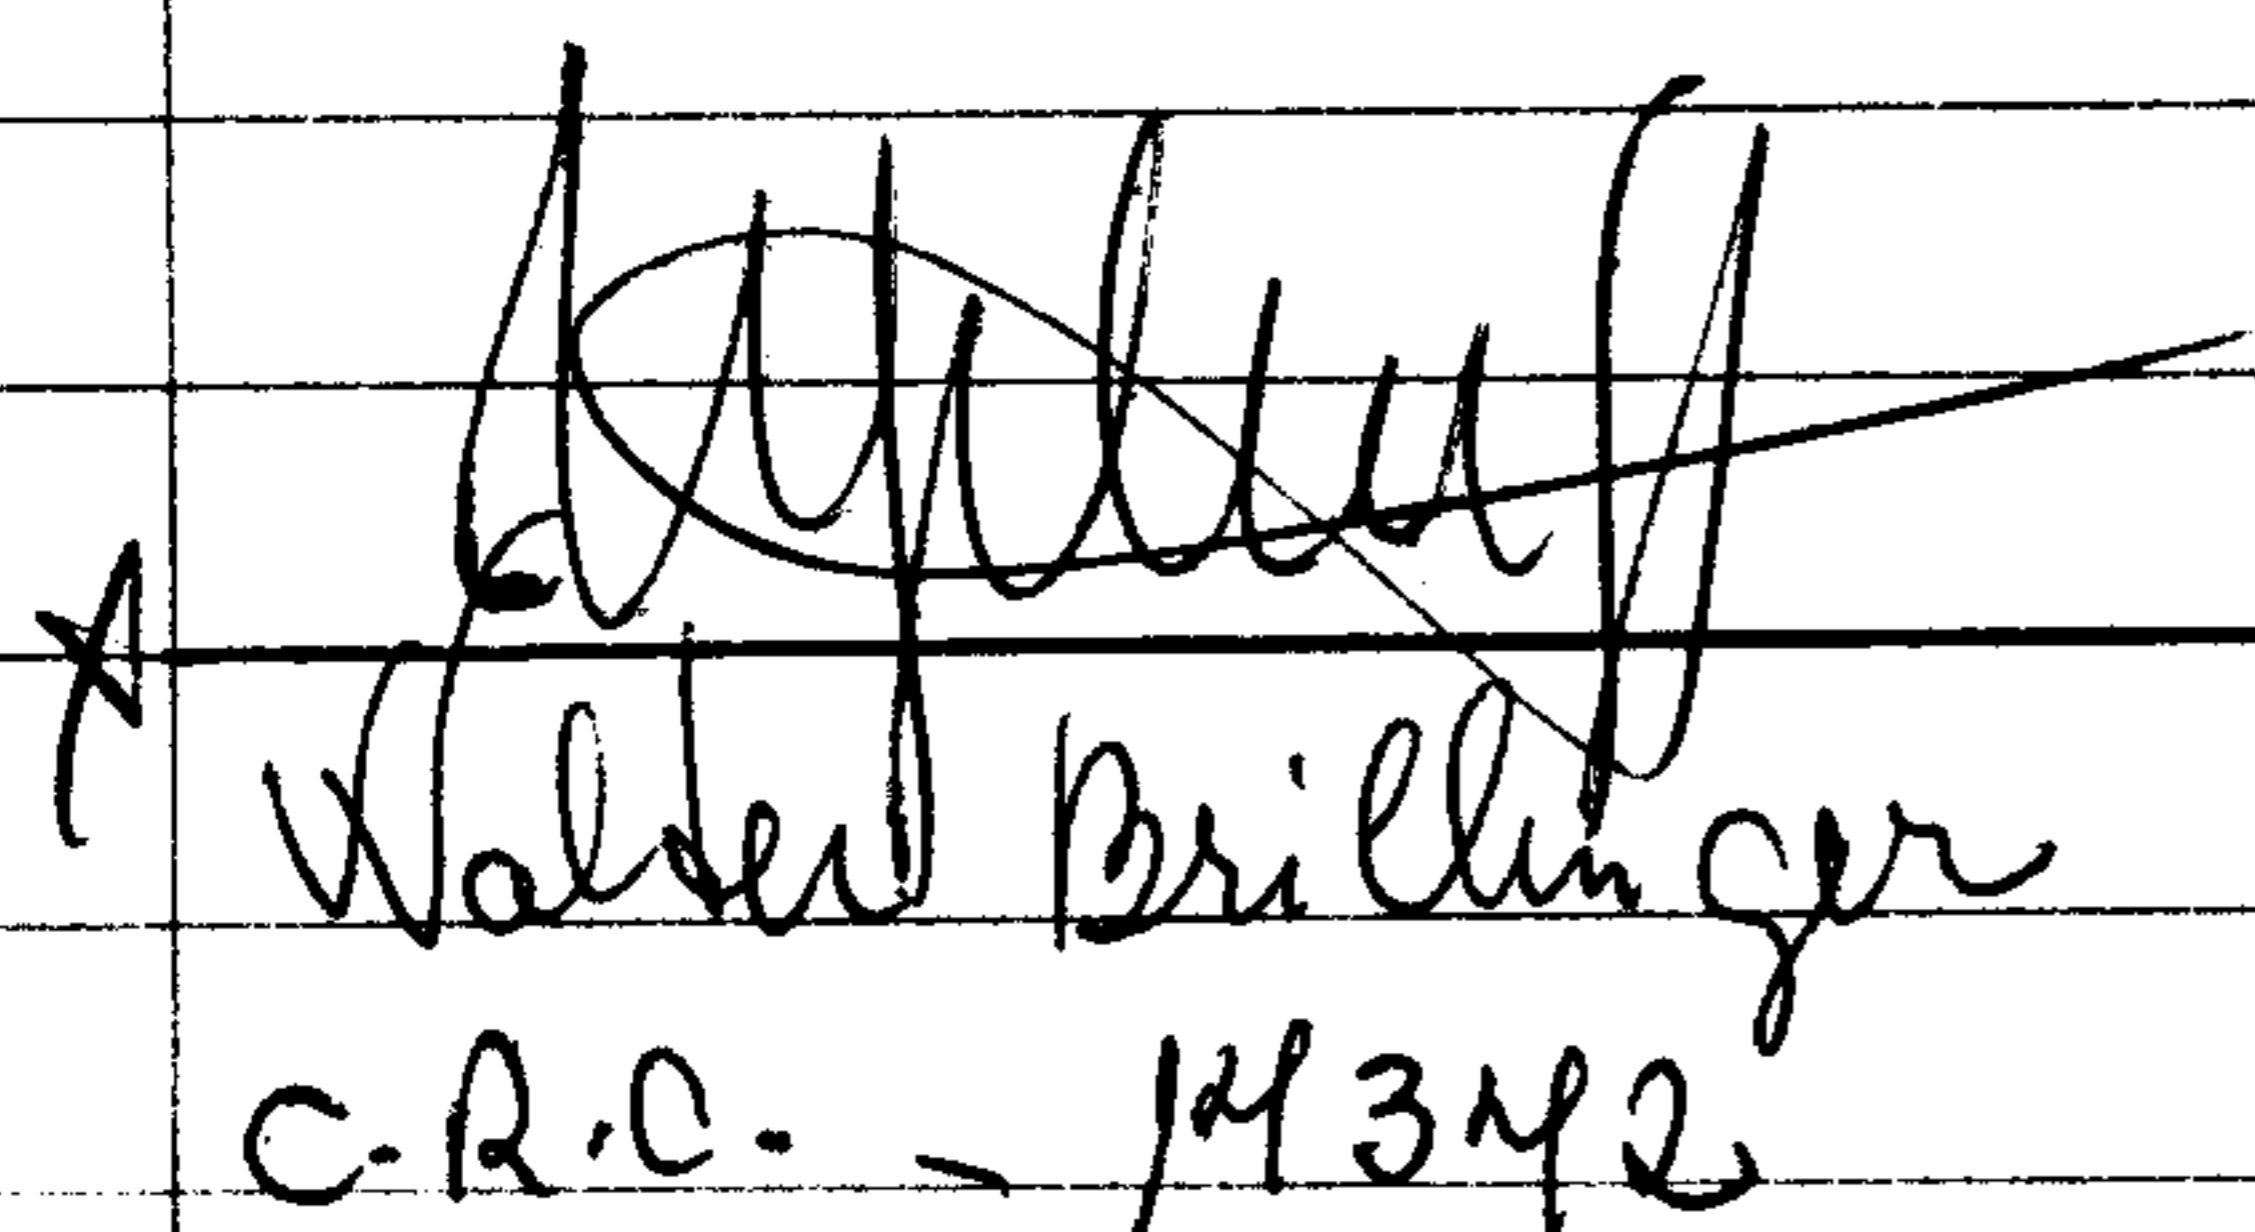 Walter Brillinger
C.R.C. - 14342